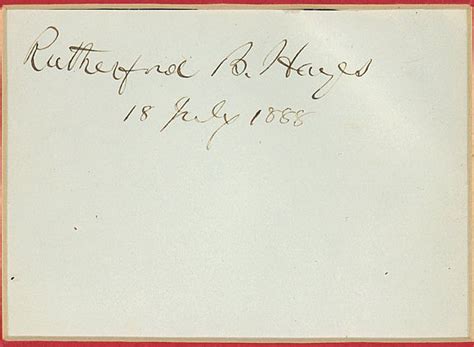 Rutherford B. Hayes
18 July 1888